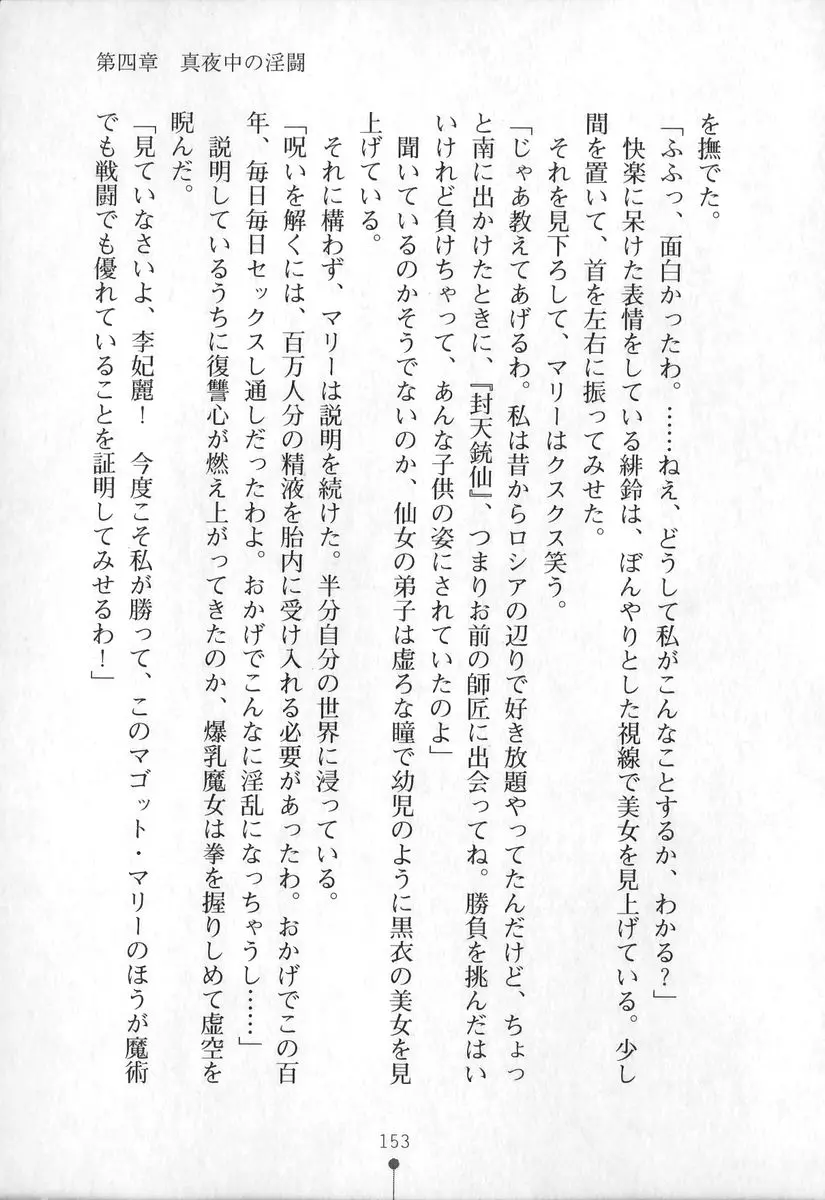 第四章　真夜中の淫闘
を撫でた。
「ふふっ、面白かったわ。……ねえ、どうして私がこんなことするか、わかる？」
快楽に呆けた表情をしている緋鈴は、ぼんやりとした視線で美女を見上げている。少し
間を置いて、首を左右に振ってみせた。
それを見下ろして、マリーはクスクス笑う。
「じゃあ教えてあげるわ。私は昔からロシアの辺りで好き放題やってたんだけど、ちょっ
と南に出かけたときに、『封天銃仙』、つまりお前の師匠に出会ってね。勝負を挑んだはい
いけれど負けちゃって、あんな子供の姿にされていたのよ」
聞いているのかそうでないのか、仙女の弟子は虚ろな瞳で幼児のように黒衣の美女を見
上げている。
それに構わず、マリーは説明を続けた。半分自分の世界に浸っている。
「呪いを解くには、百万人分の精液を胎内に受け入れる必要があったわ。おかげでこの百
年、毎日毎日セックスし通しだったわよ。おかげでこんなに淫乱になっちゃうし……」
説明しているうちに復讐心が燃え上がってきたのか、爆乳魔女は拳を握りしめて虚空を
睨んだ。
「見ていなさいよ、李妃麗！　今度こそ私が勝って、このマゴット・マリーのほうが魔術
でも戦闘でも優れていることを証明してみせるわ！」
153